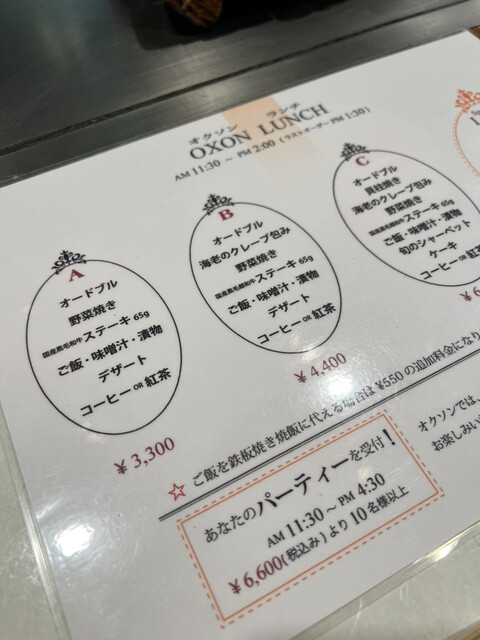 オクソン ランチ
OXON LUNCH
AM 11:30 ～ PM 2:00 ( ラストオーダー PM 1:30 )
A
オードブル
野菜焼き
国産黒毛和牛ステーキ 65g
ご飯・味噌汁・漬物
デザート
コーヒー OR 紅茶
¥ 3,300
B
オードブル
海老のクレープ包み
野菜焼き
国産黒毛和牛ステーキ 65g
ご飯・味噌汁・漬物
デザート
コーヒー OR 紅茶
¥ 4,400
C
オードブル
貝柱焼き
海老のクレープ包み
野菜焼き
国産黒毛和牛ステーキ 65g
ご飯・味噌汁・漬物
旬のシャーベット
ケーキ
コーヒー OR 紅茶
☆ ご飯を鉄板焼き焼飯に代える場合は ¥550 の追加料金になり
あなたのパーティーを受付！
AM 11:30 ～ PM 4:30
¥ 6,600(税込み) より 10 名様以上
オクソンでは、
お楽しみい